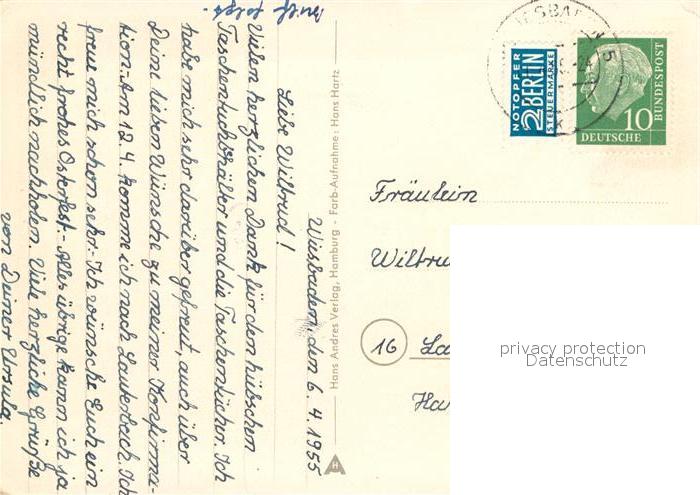 Wiesbaden, den 6. 4. 1955
Liebe Wiltrud!
Vielen herzlichen Dank für den hübschen
Taschentuchbehälter und die Taschentücher. Ich
habe mich sehr darüber gefreut, auch über
Deine lieben Wünsche zu meiner Konfirma-
tion. Am 12. 4. komme ich nach Lauterbach. Ich
freue mich schon sehr. Ich wünsche Euch ein
recht frohes Osterfest. - Alles übrige kann ich ja
mündlich nachholen. Viele herzliche Grüße
von Deiner Ursula.
folgt.
Hans Andres Verlag, Hamburg - Farb-Aufnahme: Hans Hartz
H
NOTOPFER
2 BERLIN
STEUERMARKE
10
DEUTSCHE
BUNDESPOST
Fräulein
Wiltru
16 La
Ha
privacy protection
Datenschutz